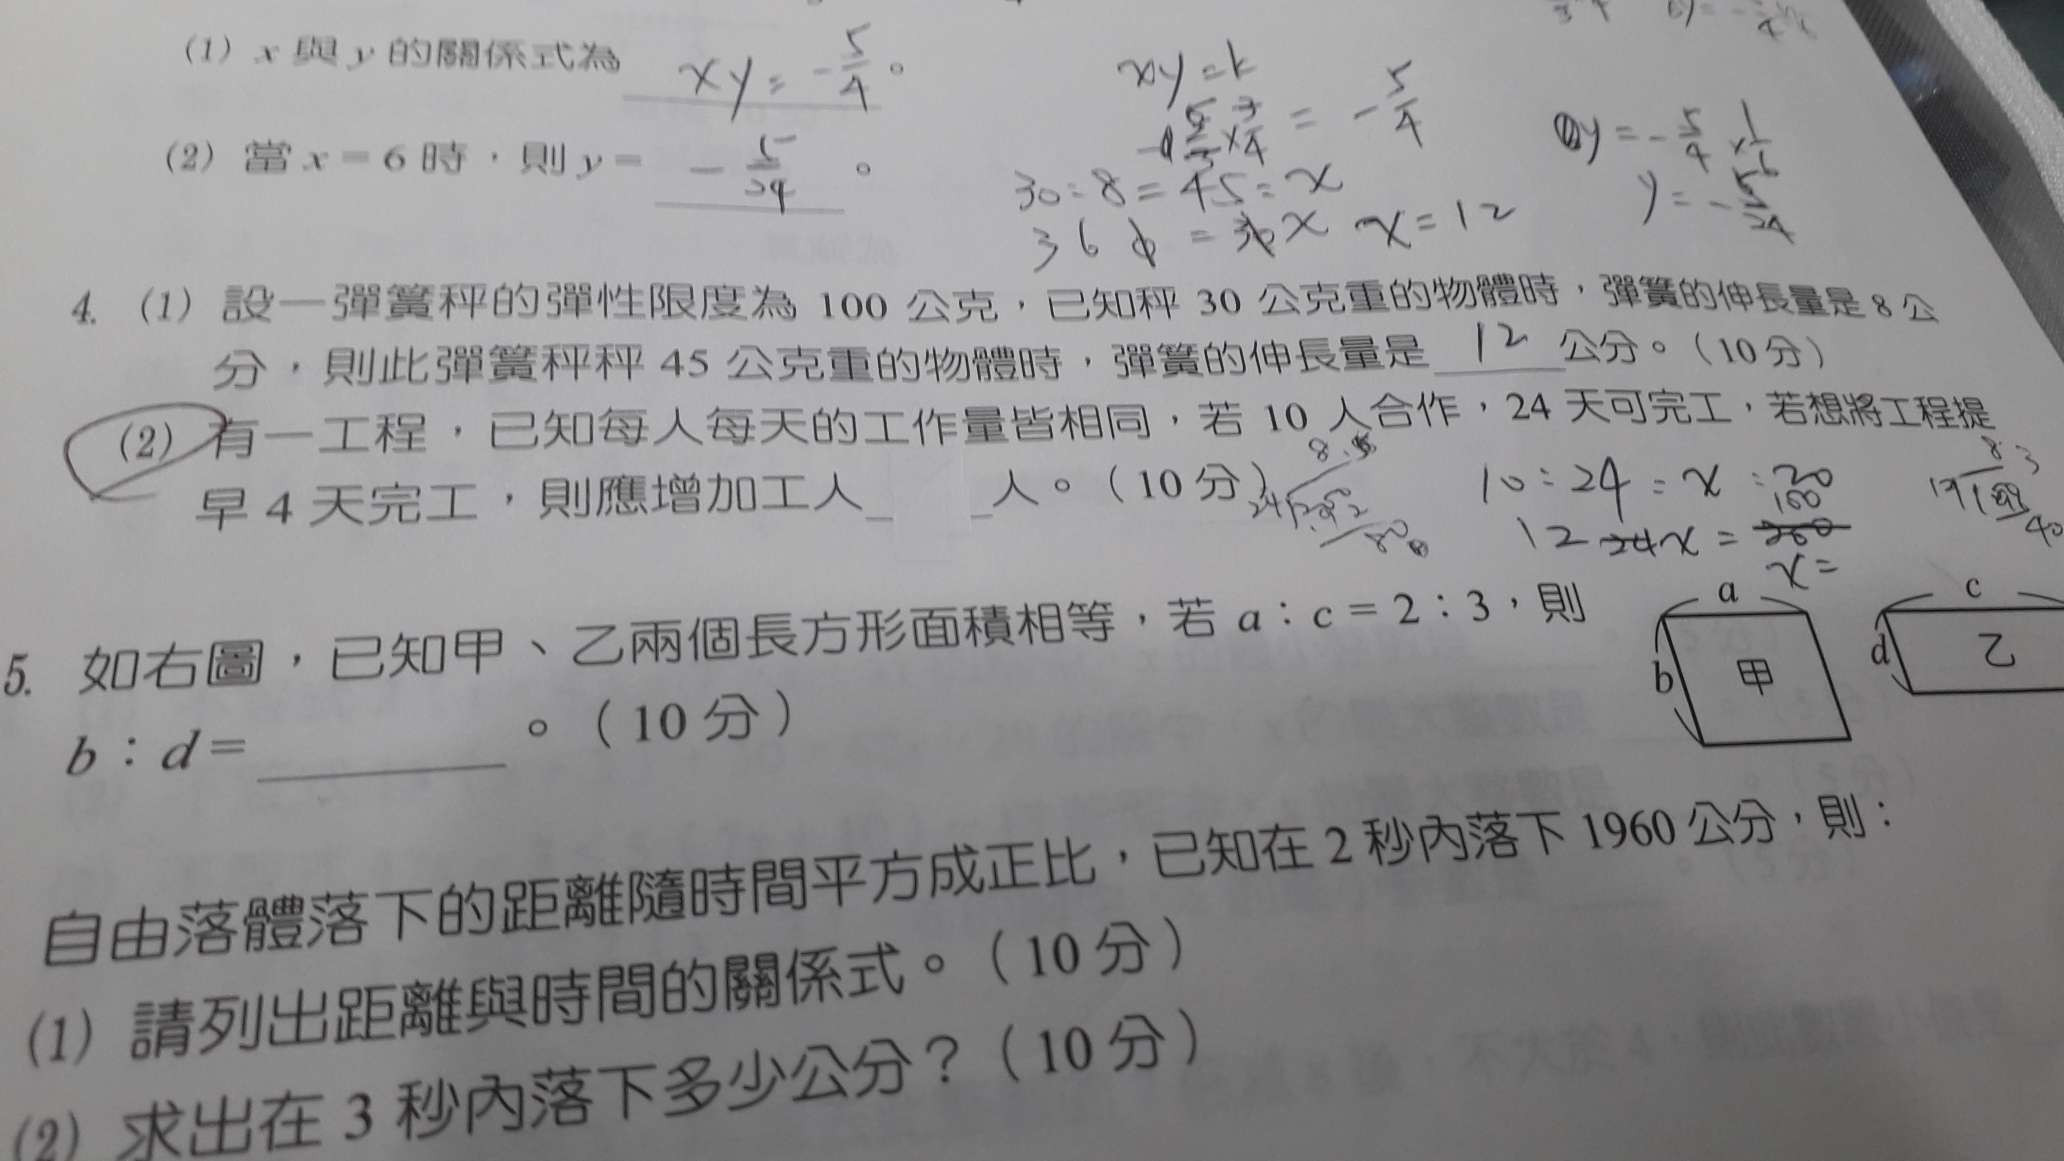 (1) x 與 y 的關係式為 xy = -5/4 。
xy = k
(2) 當 x = 6 時，則 y = -5/24 。
= -5/4
y = -5/4 × 1/6
30 : 8 = 45 : x
y = -5/24
x = 12
4. (1) 設一彈簧秤的彈性限度為 100 公克，已知秤 30 公克重的物體時，彈簧的伸長量是 8 公
分，則此彈簧秤秤 45 公克重的物體時，彈簧的伸長量是 12 公分。（10 分）
(2) 有一工程，已知每人每天的工作量皆相同，若 10 人合作，24 天可完工，若想將工程提
早 4 天完工，則應增加工人＿＿人。（10 分）
10 : 24 = x : 20
12 24x = 200
100
x =
5. 如右圖，已知甲、乙兩個長方形面積相等，若 a：c = 2：3，則
b：d = ＿＿。（10 分）
a
b
甲
c
d
乙
自由落體落下的距離隨時間平方成正比，已知在 2 秒內落下 1960 公分，則：
(1) 請列出距離與時間的關係式。（10 分）
(2) 求出在 3 秒內落下多少公分？（10 分）